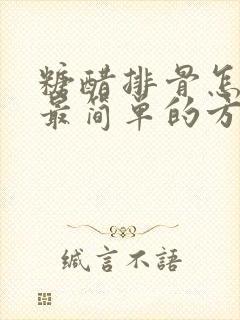 糖醋排骨怎
最简单的方
缄言不語